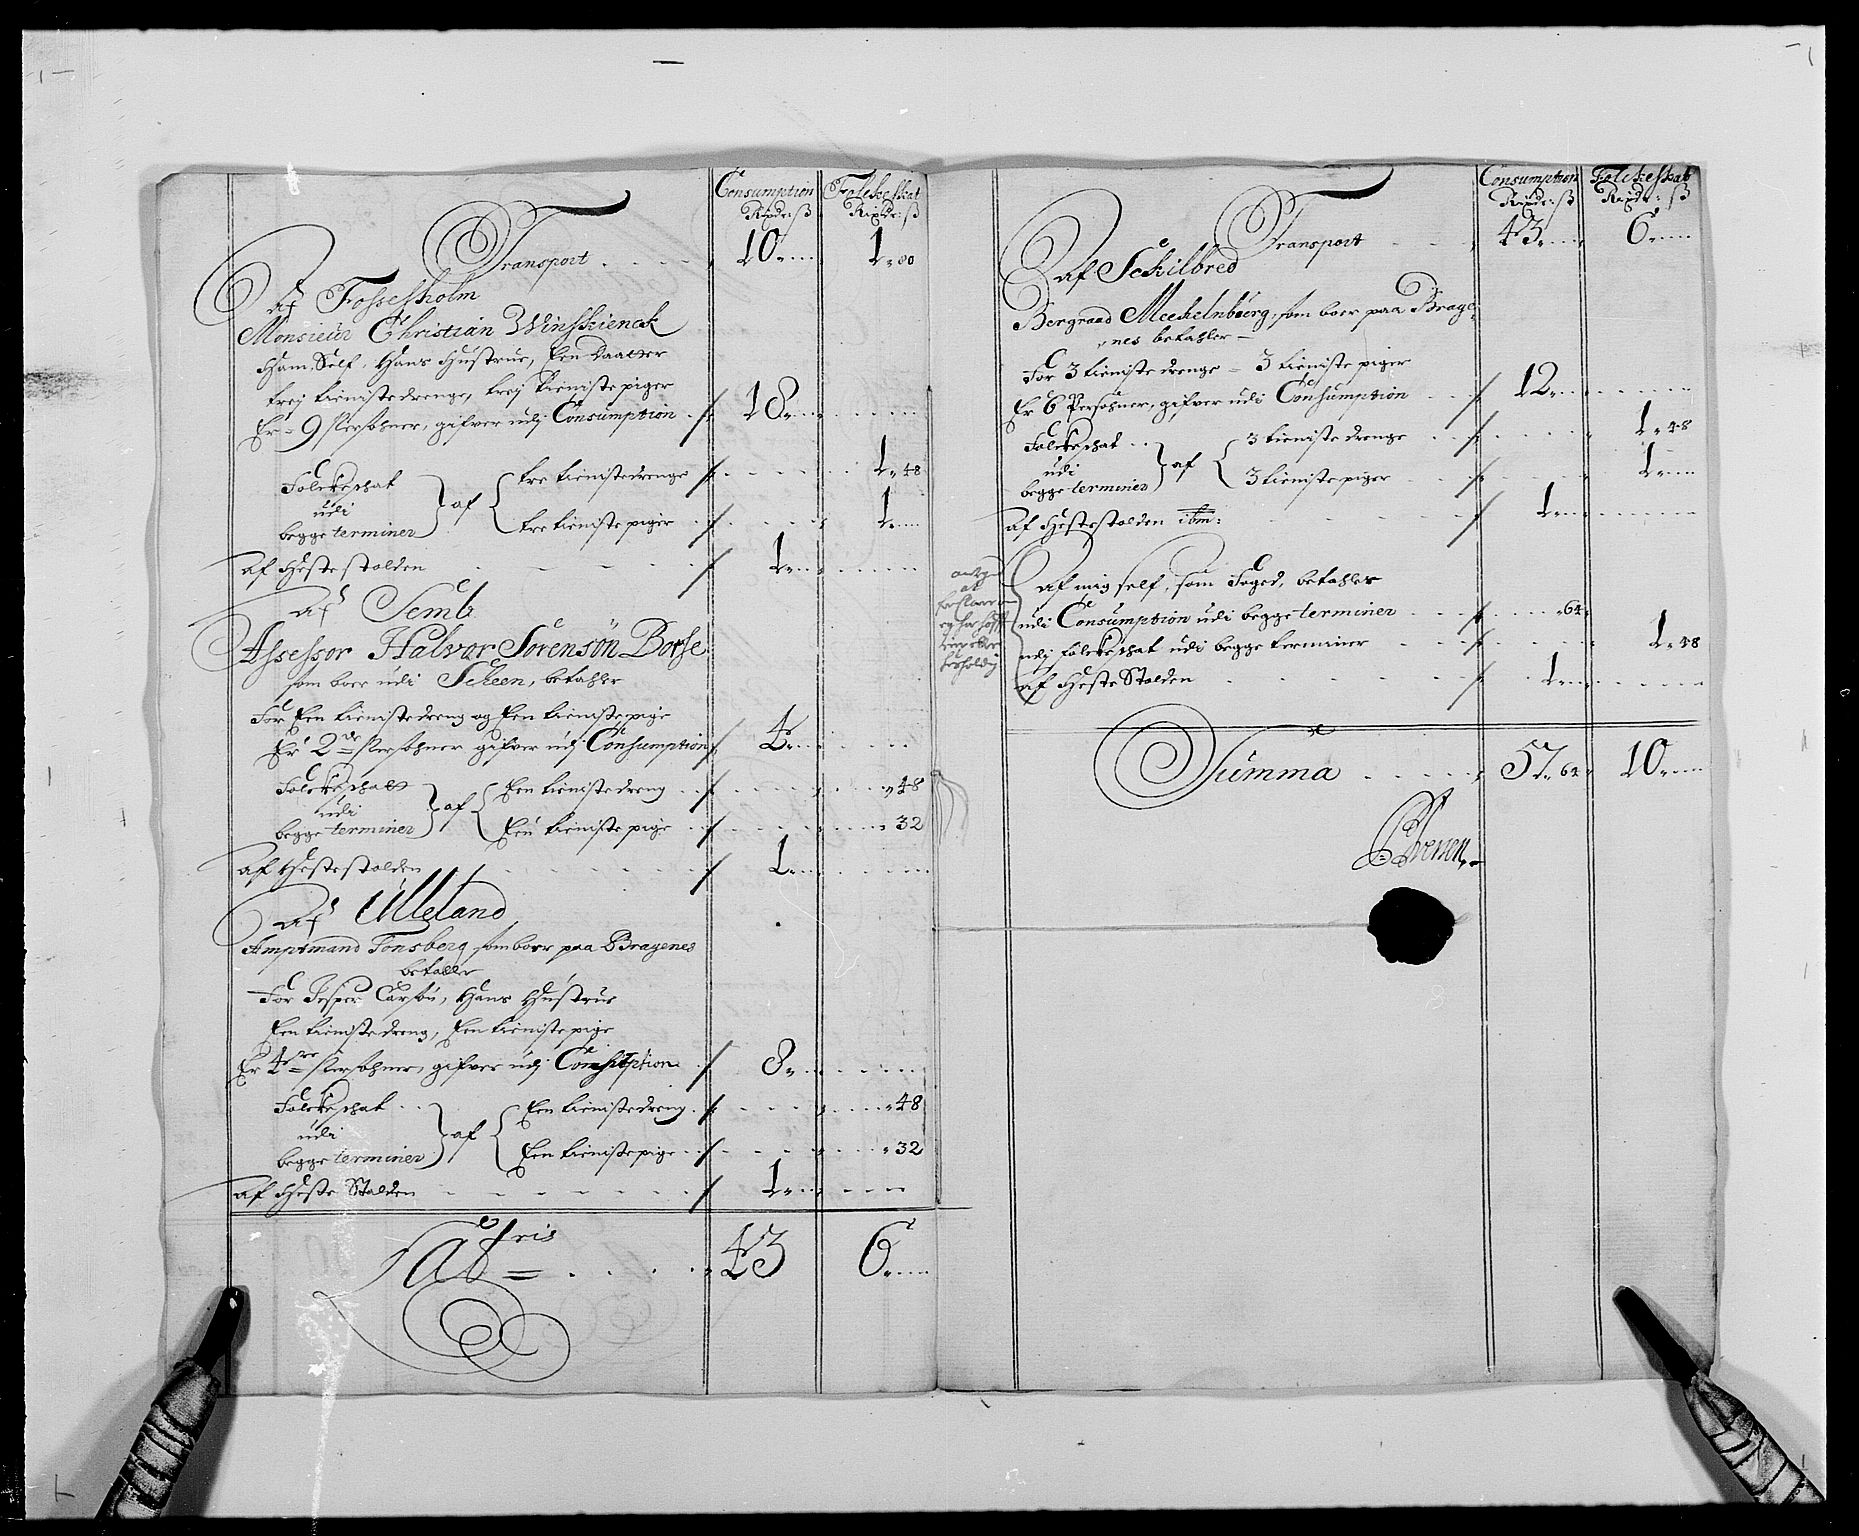 Consumption Folckeskat
Rixdr: ß Rixdr: ß
Transport . . . . 10 „ — 1 „ 80
Af Fossesholm
Monsieur Christian Winskienck
Ham Self, Hans Hustrue, Een Daatter
trej tieniste drenge, trej tieniste piger
Er 9 Persohner, gifver udj Consumption 18 „ —
Folckeschat udi begge terminer } af { tre tienistedrenge 1 „ 48
tre tieniste piger 1 „ —
af Hestestalden 1 „ —
Af Semb
Assessor Halvor Sörensön Borse
som boer udi Scheen, betahler
For Een tienistedreng og Een tienistepige
Er 2de Persohner gifver udj Consumption 4 „ —
Folckeschatt udi begge terminer } af { Een tienistedreng „ 48
Een tieniste pige „ 32
af Hestestalden 1 „ —
Af Ulleland
Amptmand Tonsberg, som boer paa Bragenes
betaller
For Jesper Carsön, Hans Hustrue
Een tienistedreng, Een tieniste pige
Er 4re Persohner, gifver udj Consumption 8 „ —
Folckeschat udi begge terminer } af { Een tienistedreng „ 48
Een tienistepige „ 32
af Heste Stalden 1 „ —
Latris 43 6 „ —
Consumption Folckeskat
Rixdr: ß Rixdr: ß
Transport 43 „ — 6 „ —
Af Schilbred
Bergraad Mechelnborg, som boer paa Brage-
nes betahler —
For 3 tieniste drenge — 3 tieniste piger
Er 6 Persohner, gifver udi Consumption 12 „ —
Folckeschat udi begge terminer } af { 3 tieniste drenge 1 „ 48
3 tieniste piger 1 „ —
af Hestestalden ibm: 1 „ —
Af mig self, som Foged, betahles
udi Consumption udi begge terminer „ 64
udj folckeschat udi begge terminer 1 „ 48
af Heste Stalden 1 „ —
Summa 57 „ 64 10 „ —
Iversen